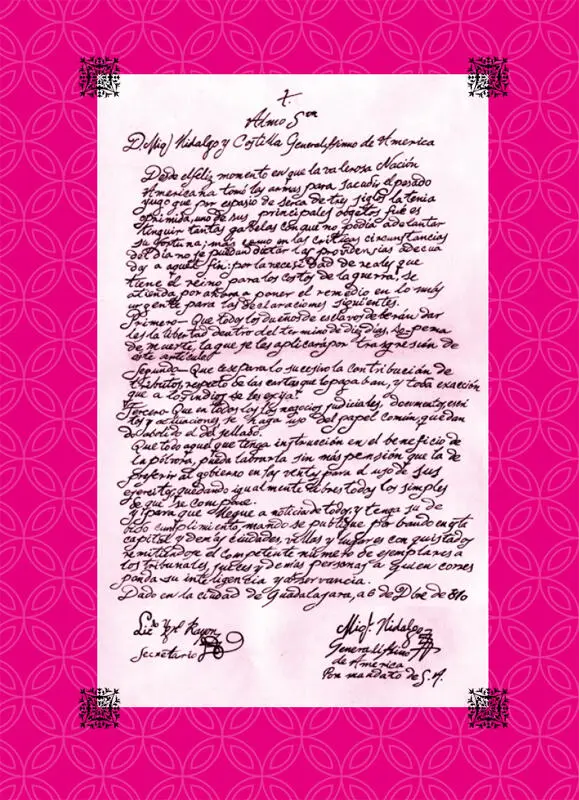 Almo Sor
D. Migl Hidalgo y Costilla Generalissimo de America
Desde el feliz momento en que la valerosa Nación
Americana tomó las armas para sacudir el pesado
yugo que por espasio de serca de tres siglos la tenia
oprimida, uno de sus principales objetos fué es
tinguir tantas gabelas con que no podia adelantar
su fortuna; mas como en las criticas circunstancias
del dia no se puedan dictar las providensias adecua
das a aquel fin; por la necesidad de reales que
tiene el reino para los costos de la guerra: se
atienda por ahora a poner el remedio en lo mas
urgente para las declaraciones siguientes.
Primero- Que todos los dueños de esclavos deberan dar
les la libertad dentro del termino de diez dias, so pena
de muerte, la que se les aplicará por trasgresion de
este articulo
Segundo- Que cese para lo sucesivo la contribución de
tributos, respeto de las castas que lo pagaban, y toda exacción
que a los indios se les exija.
Tercero- Que en todos los negocios judiciales, documentos, escri
tos y actuaciones, se haga uso del papel común, quedan
do abolido el del sellado.
Que todo aquel que tenga instrucción en el beneficio de
la pólvora, pueda labrarla sin mas pensión que la de
preferir al gobierno en las ventas para el uso de sus
ejersitos, quedando igualmente libres todos los simples
de que se compone.
Y para que llegue a noticia de todos y tenga su de
bido cumplimiento, mando se publique por bando en esta
capital y demás ciudades, villas y lugares conquistados
remitiendose el competente número de ejemplares a
los tribunales, jueces y demas personas a quien corres
ponda su inteligencia y observancia.
Dado en la ciudad de Guadalajara, a 6 de Dbre de 810
Lic. Rayon
Secretario
Migl. Hidalgo
Generalissimo
de America
Por mandato de S.A.